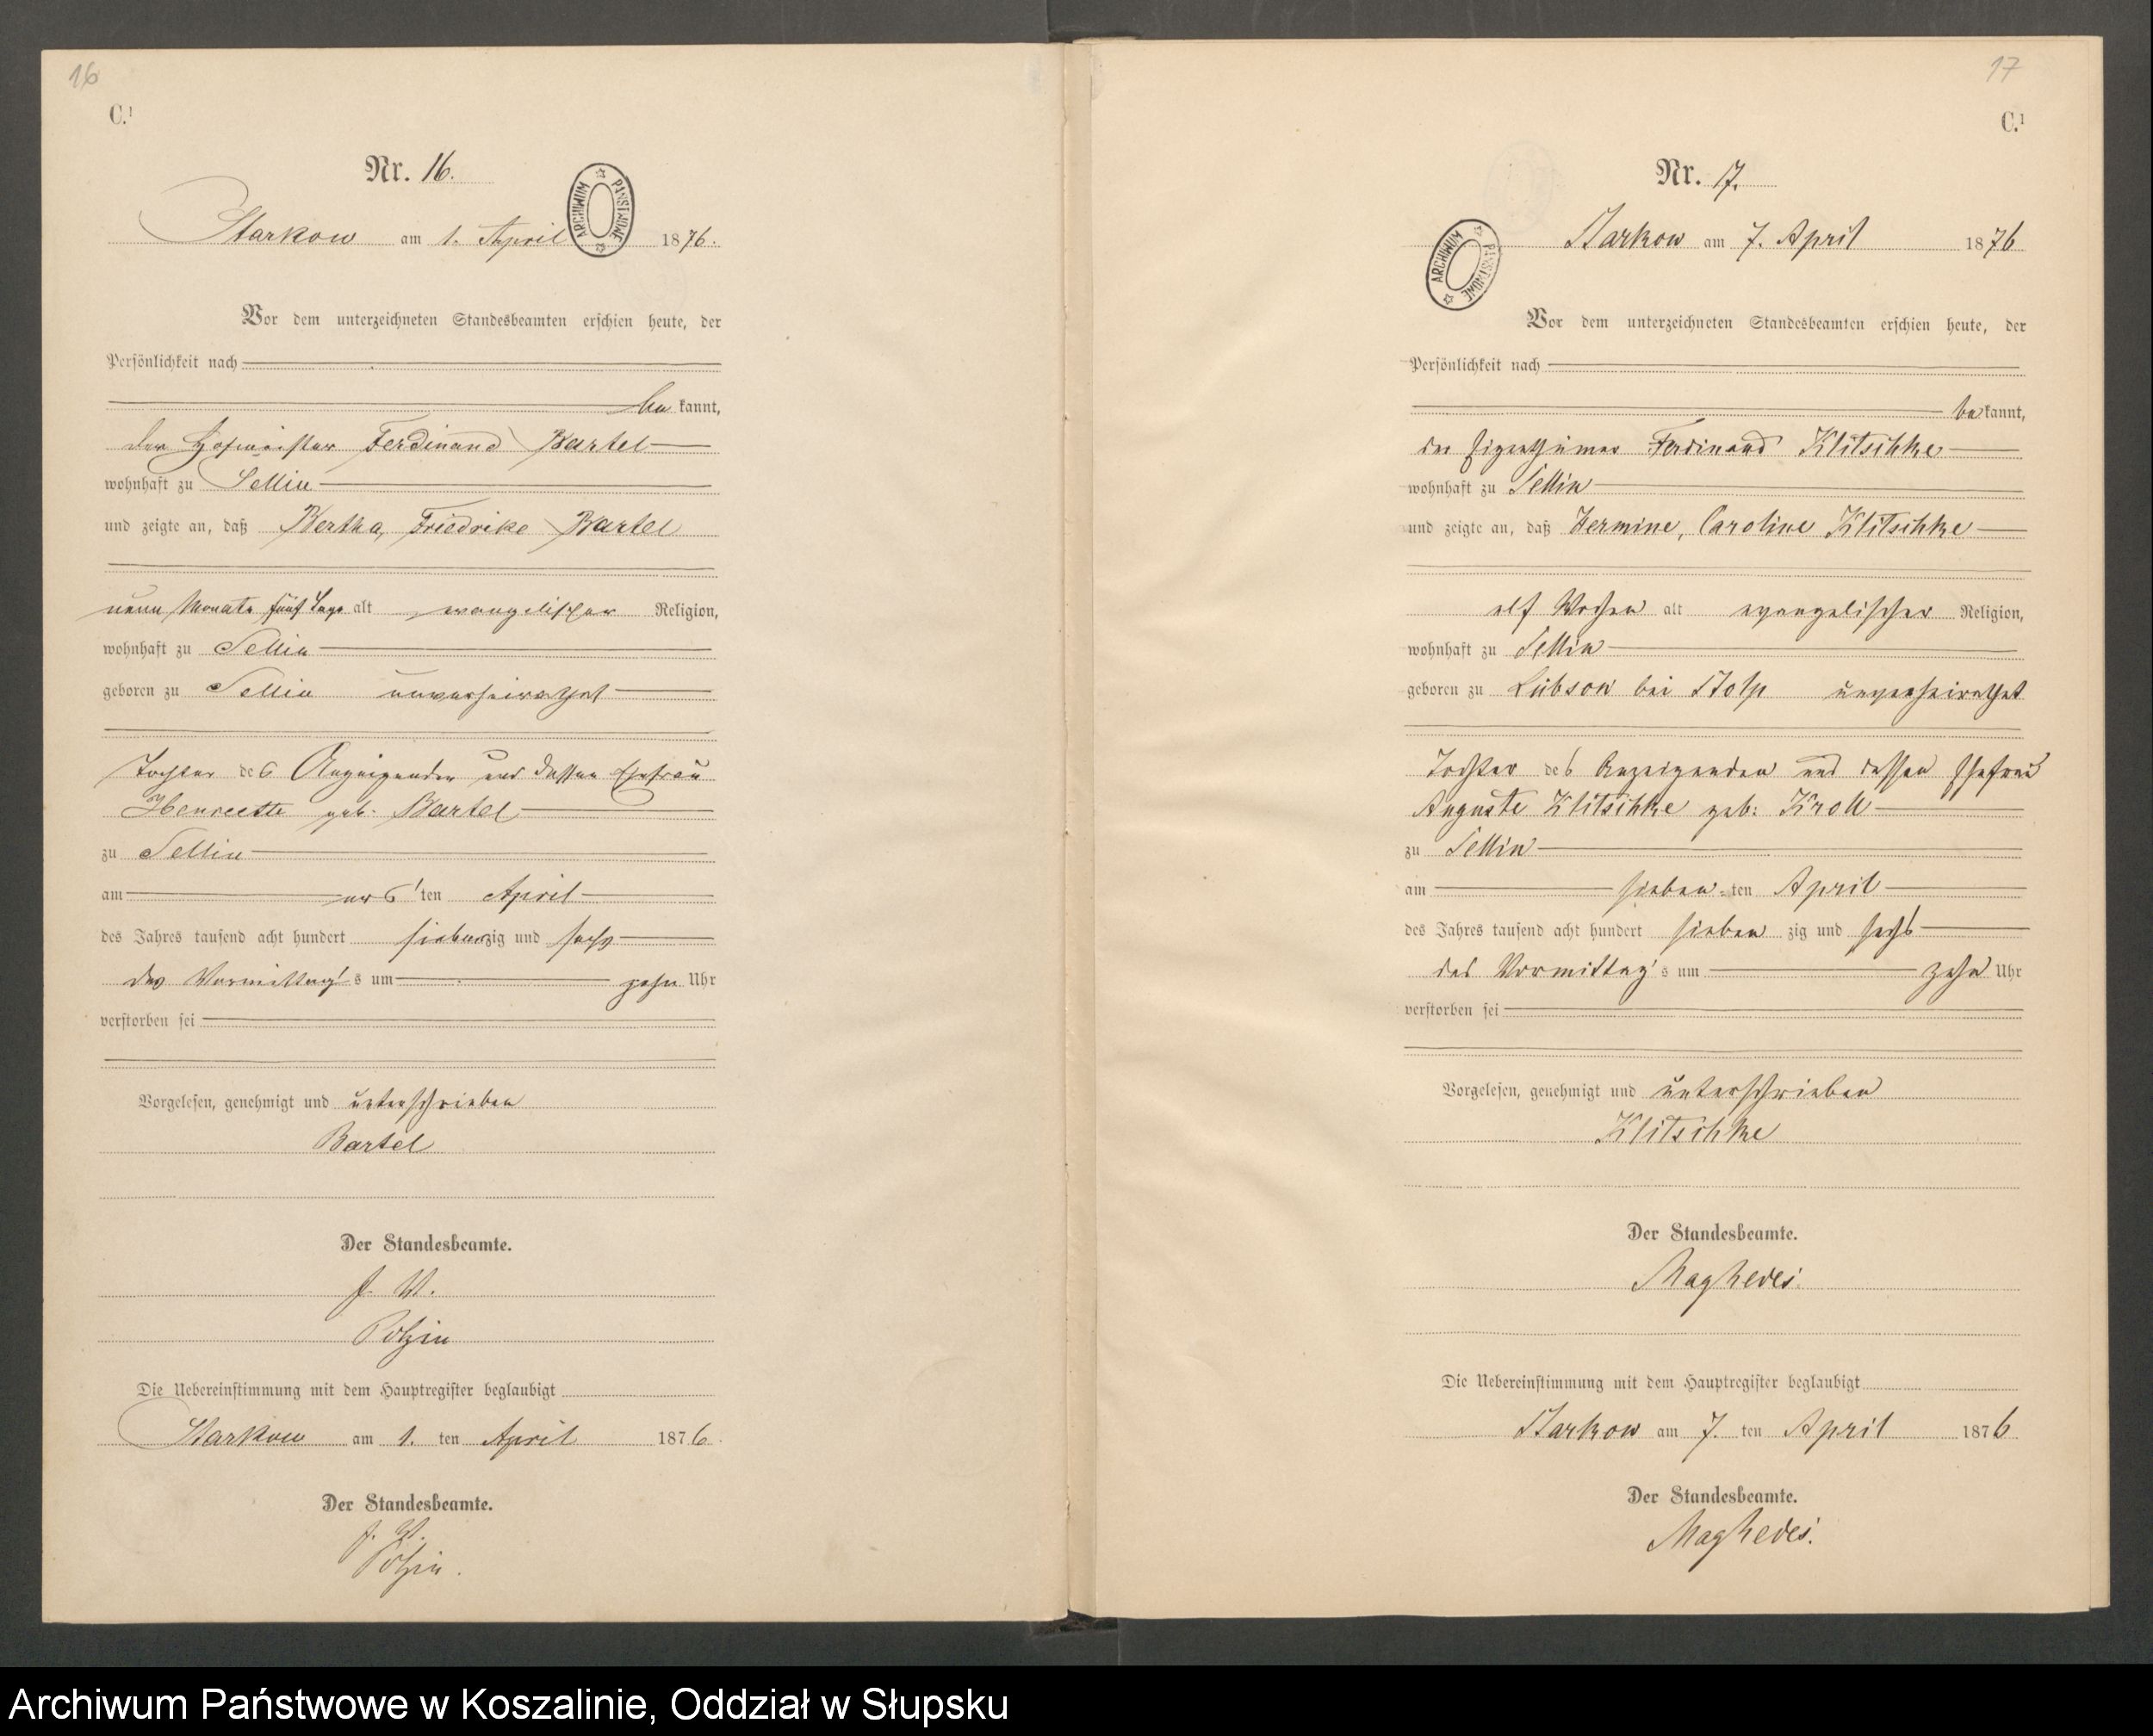 16
C.¹
Nr. 16.
ARCHIWUM PAŃSTWOWE
Starkow am 1. April 1876.
Vor dem unterzeichneten Standesbeamten erschien heute, der
Persönlichkeit nach
be kannt,
der Hofmeister Ferdinand Bartel
wohnhaft zu Sellin
und zeigte an, daß Bertha, Friedrike Bartel
neun Monate fünf Tage alt evangelischer Religion,
wohnhaft zu Sellin
geboren zu Sellin unverheirathet
Tochter des Anzeigenden und dessen Ehefrau
Henriette geb. Bartel
zu Sellin
am ers'ten April
des Jahres tausend acht hundert siebenzig und sechs
des Vormittag's um zehn Uhr
verstorben sei
Vorgelesen, genehmigt und unterschrieben
Bartel
Der Standesbeamte.
J. V.
Polzin
Die Uebereinstimmung mit dem Hauptregister beglaubigt
Starkow am 1. ten April 1876.
Der Standesbeamte.
J. V.
Polzin.
17
C.¹
Nr. 17.
ARCHIWUM PAŃSTWOWE
Starkow am 7. April 1876
Vor dem unterzeichneten Standesbeamten erschien heute, der
Persönlichkeit nach
be kannt,
der Eigenthümer Ferdinand Klitschke
wohnhaft zu Sellin
und zeigte an, daß Hermine, Caroline Klitschke
elf Wochen alt evangelischer Religion,
wohnhaft zu Sellin
geboren zu Lübsow bei Stolp unverheirathet
Tochter des Anzeigenden und dessen Ehefrau
Auguste Klitschke geb: Kroll
zu Sellin
am sieben-ten April
des Jahres tausend acht hundert sieben zig und sechs
des Vormittag's um zehn Uhr
verstorben sei
Vorgelesen, genehmigt und unterschrieben
Klitschke
Der Standesbeamte.
Die Uebereinstimmung mit dem Hauptregister beglaubigt
Starkow am 7. ten April 1876
Der Standesbeamte.
Archiwum Państwowe w Koszalinie, Oddział w Słupsku